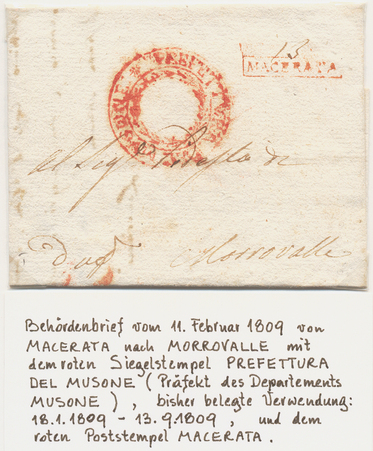 13
MACERATA
al Sig.e Podestà di
d'uff.
Morrovalle
Behördenbrief vom 11. Februar 1809 von
MACERATA nach MORROVALLE mit
dem roten Siegelstempel PREFETTURA
DEL MUSONE ( Präfekt des Departements
MUSONE ) , bisher belegte Verwendung:
18.1.1809 - 13.9.1809 , und dem
roten Poststempel MACERATA .